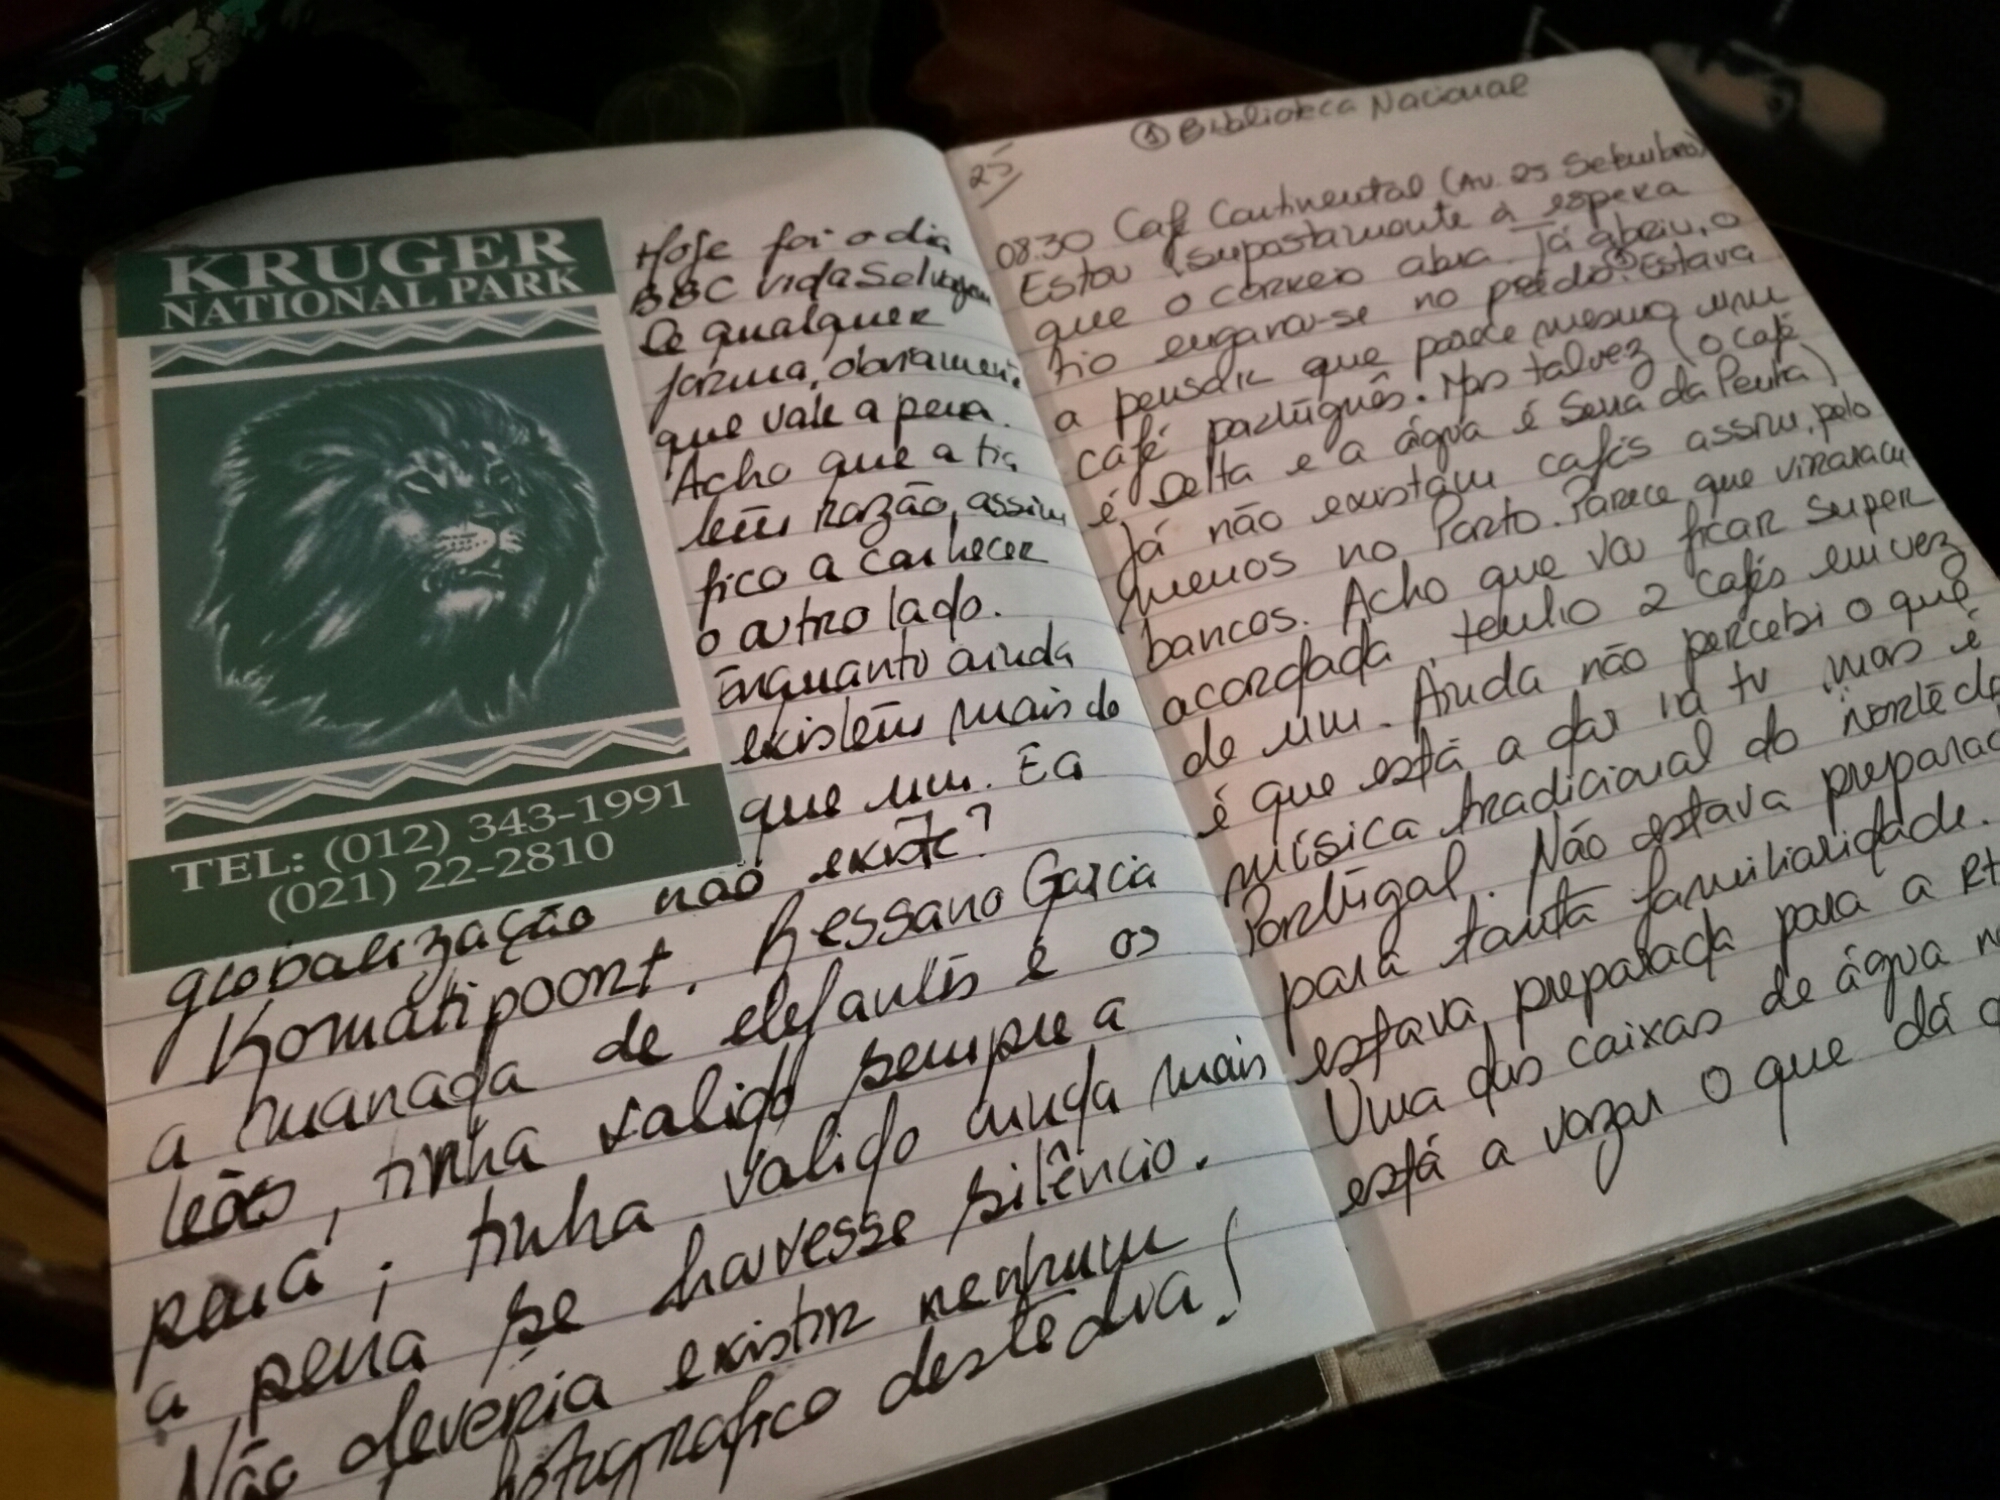 KRUGER
NATIONAL PARK
TEL: (012) 343-1991
(021) 22-2810
Hoje foi o dia
BBC vida Selvagem
De qualquer
forma, obviamente
que vale a pena.
Acho que a tia
tem razão, assim
fico a conhecer
o outro lado.
Enquanto ainda
existem mais do
que um. E a
globalização não existe?
Komatipoort. Ressano Garcia
a manada de elefantes e os
leões, tinha valido sempre a
pena; tinha valido ainda mais
a pena se houvesse silêncio.
Não deveria existir nenhum
fotográfico deste dia!
25/
① Biblioteca Nacional
08.30 Café Continental (Av. 25 Setembro)
Estou (supostamente à espera
que o correio abra. Já abriu, o
tio enganou-se no prédio①. Estava
a pensar que parece mesmo um
café português. Mas talvez (o café
é Delta e a água é Serra da Penha)
já não existam cafés assim, pelo
menos no Porto. Parece que viraram
bancos. Acho que vou ficar super
acordada, tenho 2 cafés em vez
de um. Ainda não percebi o que
é que está a dar na tv mas é
música tradicional do norte de
Portugal. Não estava preparada
para tanta familiaridade.
estava preparada para a RT
Uma das caixas de água
está a vazar o que dá